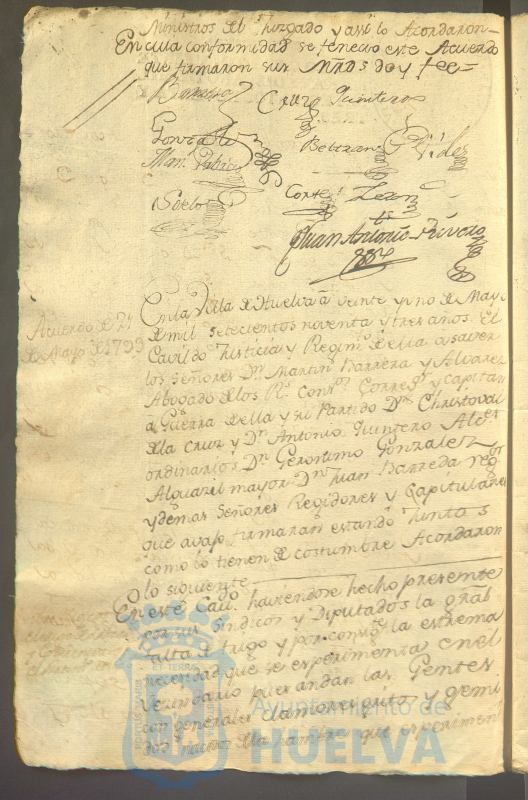 Ministros del Juzgado y asi lo Acordaron
En cuia conformidad se fenecio este Acuerdo
que firmaron sus Mrds doy fee=
Barrera
Cruz
Quintero
Gonzalez
Beltran
Cortes
Leon
Juan Antonio Rivera
Acuerdo de 21
de Mayo de 1793
En la Villa de Huelva â veinte y uno de Mayo
de mil setecientos noventa y tres años. El
Cavildo Justicia y Regimto de ella a saver
los Señores Dn Martin Barrera y Alvarez
Abogado de los Rs Consos Corregr y Capitan
â Guerra de ella y su Partido Dn Christoval
de la Cruz y Dn Antonio Quintero Alces
ordinarios Dn Geronimo Gonzalez
Alguazil mayor Dn Juan Barreda regor
y demas Señores Regidores y Capitulares
que avajo firmaran estando Juntos
como lo tienen de costumbre Acordaron
lo siguiente
En este Cavdo. haviendose hecho presente
por sus Sindicos y Diputados la gral
falta de trigo y por consigte la extrema
necesidad que se experimenta en el
vezindario pues andan las Gentes
con generales clamores gritos y gemi
dos nacidos de la hambre que experimen
PORTUS MARIS
ET TERRÆ
Ayuntamiento de
HUELVA